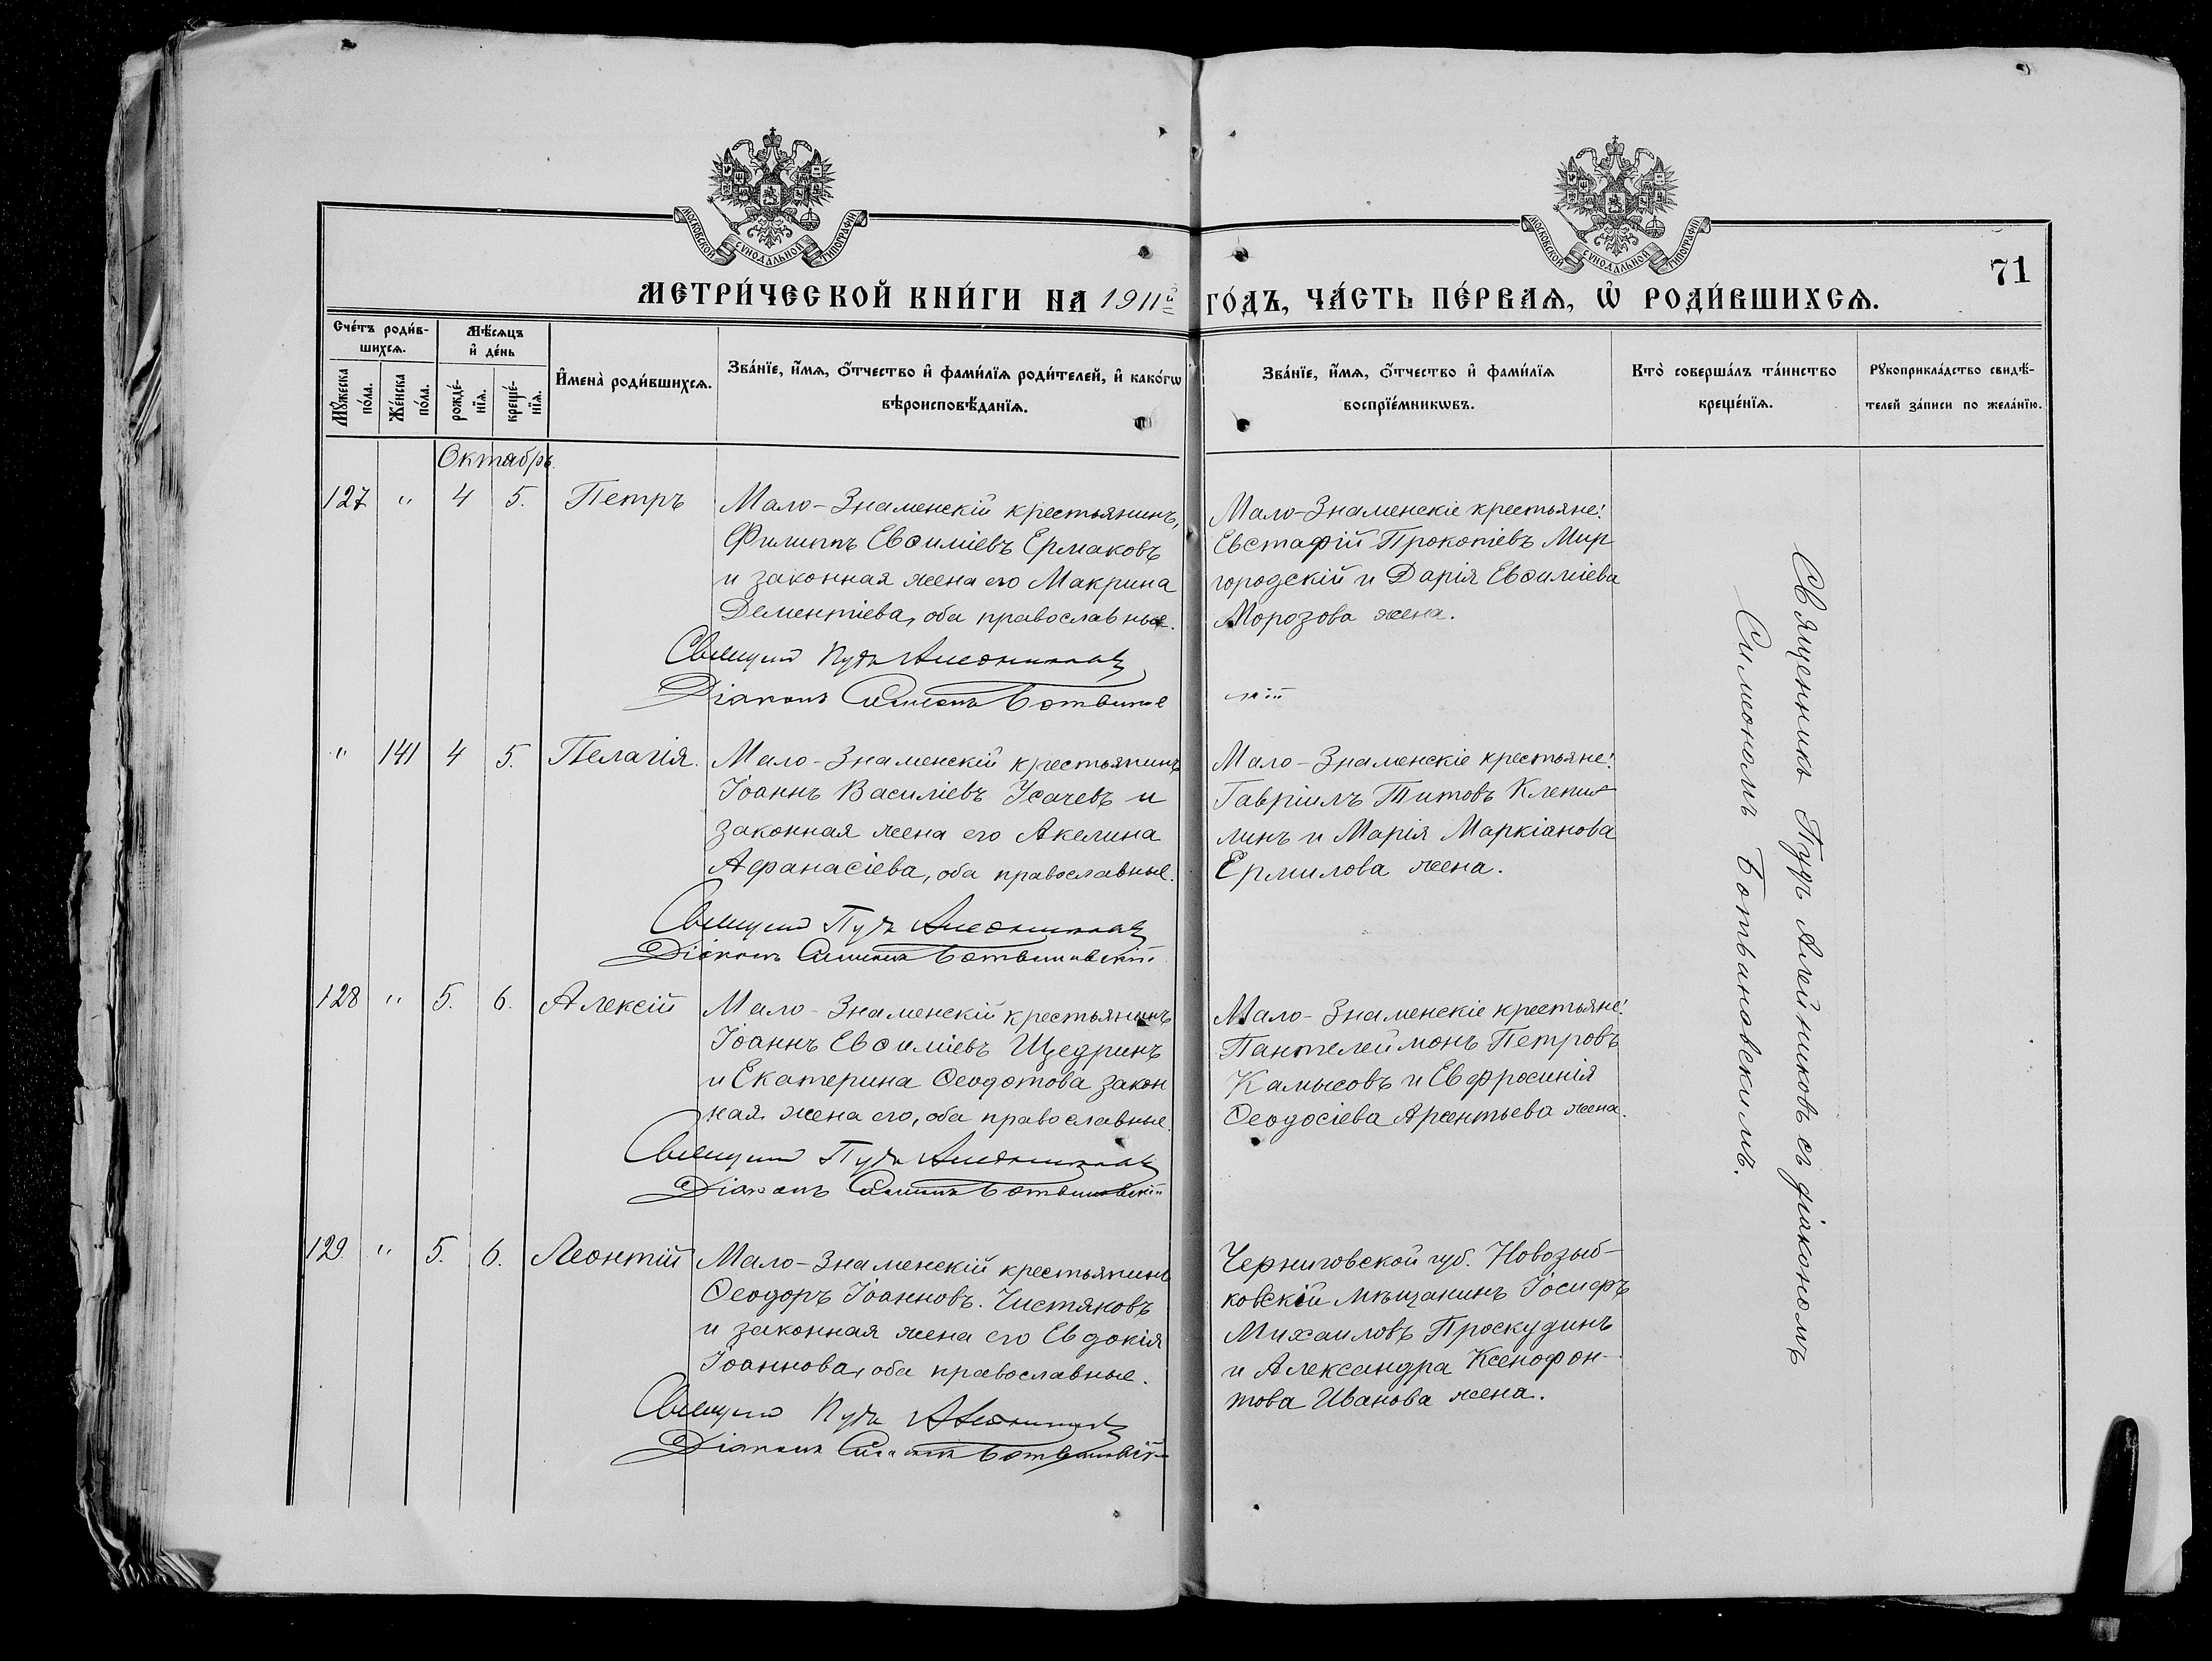 МОСКОВСКОЙ СУНОДАЛЬНОЙ ТИПОГРАФІИ
МОСКОВСКОЙ СУНОДАЛЬНОЙ ТИПОГРАФІИ
71
МЕТРИ́ЧЕСКОЙ КНИ́ГИ НА 1911й ГО́ДЪ, ЧА́СТЬ ПЕ́РВАѦ, Ѡ РОДИ́ВШИХСѦ.
Счетъ роди́в-
шихсѧ.
Мꙋ́жеска по́ла.
Же́нска по́ла.
Мѣ́сѧцъ
и҆ де́нь
рожде́-нїѧ.
креще́-нїѧ.
И҆мена̀ роди́вшихсѧ.
Зва́нїе, и҆́мѧ, ѻ҆́тчество и҆ фами́лїѧ роди́телей, и҆ како́гѡ
вѣроисповѣ́данїѧ.
Зва́нїе, и҆́мѧ, ѻ҆́тчество и҆ фами́лїѧ
воспрїе́мникѡвъ.
Кто̀ соверша́лъ та́инство
креще́нїѧ.
Рꙋкоприкла́дство свидѣ́-
телей за́писи по жела́нїю.
Октябрь
127 " 4 5. Петръ
Мало-Знаменскій крестьянинъ,
Филиппъ Евѳиміевъ Ермаковъ
и законная жена его Макрина
Дементіева, оба православные.
Священникъ Пудъ Алейниковъ
Діаконъ Симеонъ Ботвинов
Мало-Знаменскіе крестьяне:
Евстафій Прокопіевъ Мир
городскій и Дарія Евѳиміева
Морозова жена.
" 141 4 5. Пелагія.
Мало-Знаменскій крестьянинъ
Іоаннъ Василіевъ Усачевъ и
законная жена его Акелина
Афанасіева, оба православные.
Священникъ Пудъ Алейниковъ
Діаконъ Симеонъ Ботвиновскій
Мало-Знаменскіе крестьяне:
Гавріилъ Титовъ Клепи
линъ и Марія Маркіанова
Ермилова жена.
128 " 5. 6. Алексій
Мало-Знаменскій крестьянинъ
Іоаннъ Евѳиміевъ Щедринъ
и Екатерина Ѳеодотова закон
ная жена его, оба православные.
Священникъ Пудъ Алейниковъ
Діаконъ Симеонъ Ботвиновскій
Мало-Знаменскіе крестьяне:
Пантелеймонъ Петровъ
Камысовъ и Евфросинія
Ѳеодосіева Арентьева жена.
129. " 5. 6. Леонтій
Мало-Знаменскій крестьянинъ
Ѳеодоръ Іоанновъ. Чистяковъ
и законная жена его Евдокія
Іоаннова, оба православные.
Священникъ Пудъ Алейниковъ
Діаконъ Симеонъ Ботвиновскій
Черниговской губ. Новозыб-
ковскій мѣщанинъ Іосифъ
Михаиловъ Проскудинъ
и Александра Ксенофон-
това Иванова жена.
Священникъ Пудъ Алейниковъ съ діакономъ
Симеономъ Ботвиновскимъ.